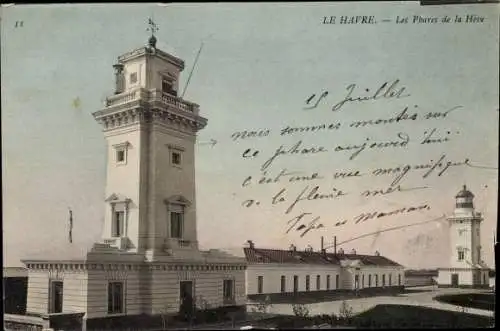 11
LE HAVRE. — Les Phares de la Hève
15 Juillet
nous sommes montés sur
ce phare aujourd'hui
c'est une vue magnifique
de la pleine mer
Papa et maman